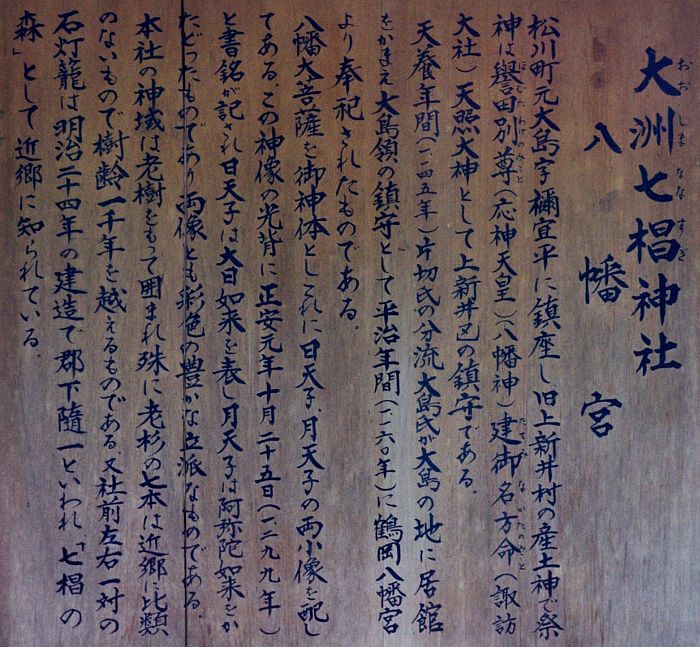 大洲七椙神社
おおしまななすぎ
八幡宮
松川町元大島字禰宜平に鎮座し旧上新井村の産土神で祭
神は誉田別尊(応神天皇)(八幡神)建御名方命(諏訪
ほむたわけのみこと
たてみなかたのみこと
大社)天照大神として上新井区の鎮守である。
天養年間(一一四五年)片切氏の分流大島氏が大島の地に居館
をかまえ大島領の鎮守として平治年間(一一六〇年)に鶴岡八幡宮
より奉祀されたものである。
八幡大菩薩を御神体としこれに日天子、月天子の両小像を配し
てある。この神像の光背に正安元年十月二十五日(一二九九年)
と書銘が記され日天子は大日如来を表し月天子は阿弥陀如来をか
たどったものであり両像とも彩色の豊かな立派なものである。
本社の神域は老樹をもって囲まれ殊に老杉の七本は近郷に比類
のないもので樹齢一千年を越えるものである。又社前左右一対の
石灯籠は明治二十四年の建造で郡下随一といわれ、「七椙の
森」として近郷に知られている。